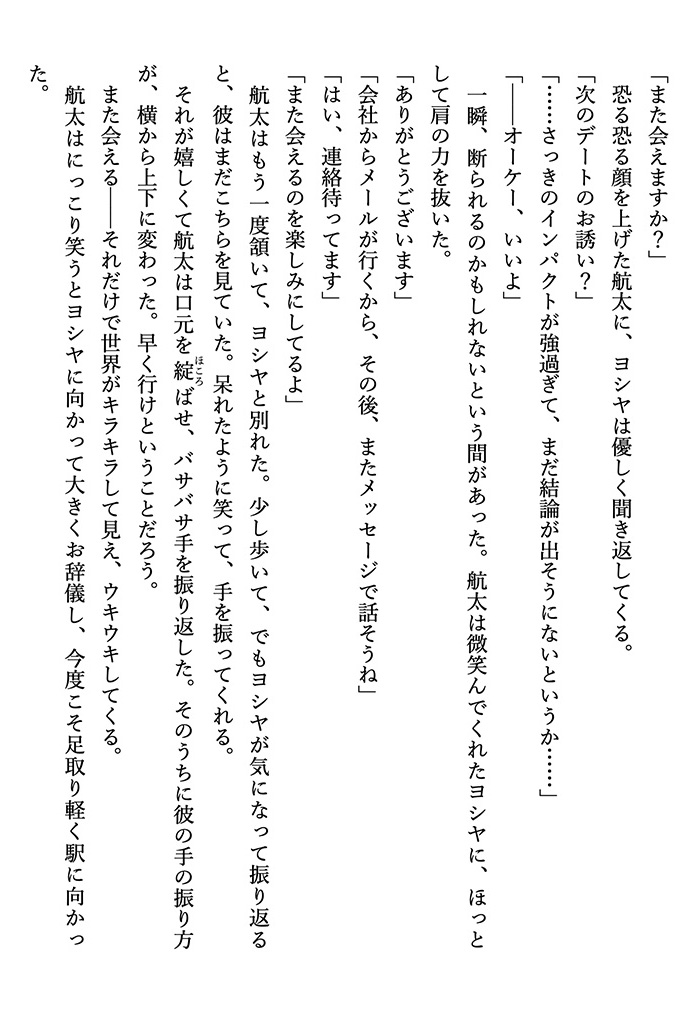 「また会えますか？」
　恐る恐る顔を上げた航太に、ヨシヤは優しく聞き返してくる。
「次のデートのお誘い？」
「……さっきのインパクトが強過ぎて、まだ結論が出そうにないというか……」
「――オーケー、いいよ」
　一瞬、断られるのかもしれないという間があった。航太は微笑んでくれたヨシヤに、ほっと
して肩の力を抜いた。
「ありがとうございます」
「会社からメールが行くから、その後、またメッセージで話そうね」
「はい、連絡待ってます」
「また会えるのを楽しみにしてるよ」
　航太はもう一度頷いて、ヨシヤと別れた。少し歩いて、でもヨシヤが気になって振り返る
と、彼はまだこちらを見ていた。呆れたように笑って、手を振ってくれる。
　それが嬉しくて航太は口元を綻ほころばせ、バサバサ手を振り返した。そのうちに彼の手の振り方
が、横から上下に変わった。早く行けということだろう。
　また会える――それだけで世界がキラキラして見え、ウキウキしてくる。
　航太はにっこり笑うとヨシヤに向かって大きくお辞儀し、今度こそ足取り軽く駅に向かっ
た。